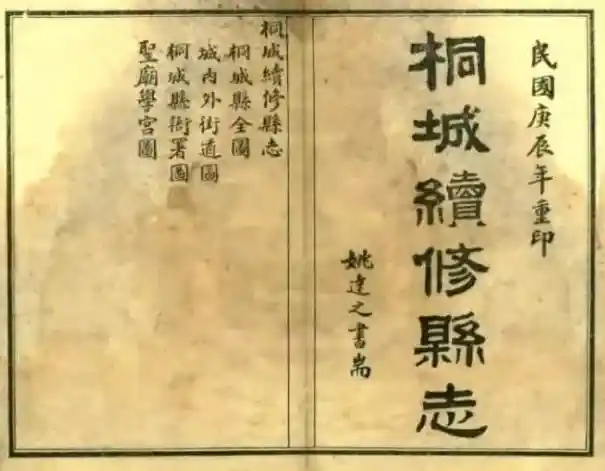 民國庚辰年重印
桐城續修縣志
姚達之書耑
桐城續修縣志
桐城縣全圖
城內外街道圖
桐城縣衙署圖
聖廟學宮圖